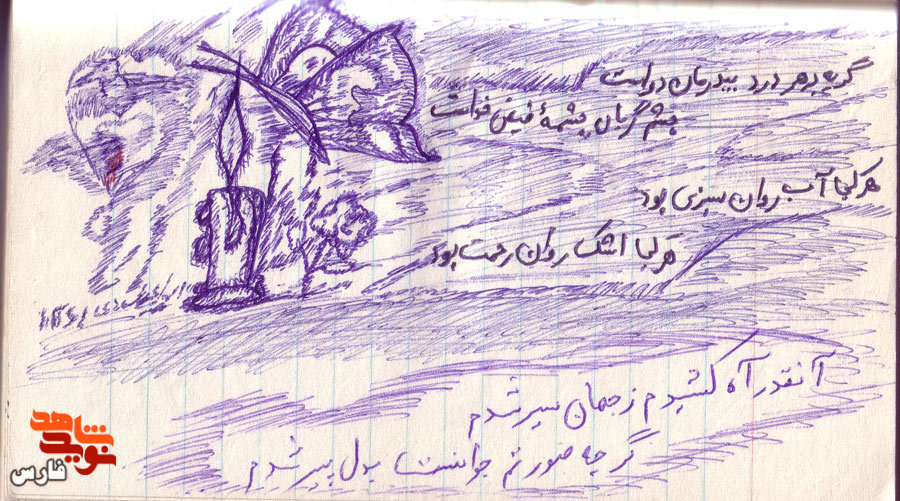 گریه بر هر درد بیدرمان دواست
چشم گریان چشمهٔ فیض خداست
هر کجا آب روان سبزی بود
هر کجا اشک روان رحمت بود
آنقدر آه کشیدم ز جهان سیر شدم
گر چه صورتم جوانست بدل پیر شدم
نوید شاهد
فارس